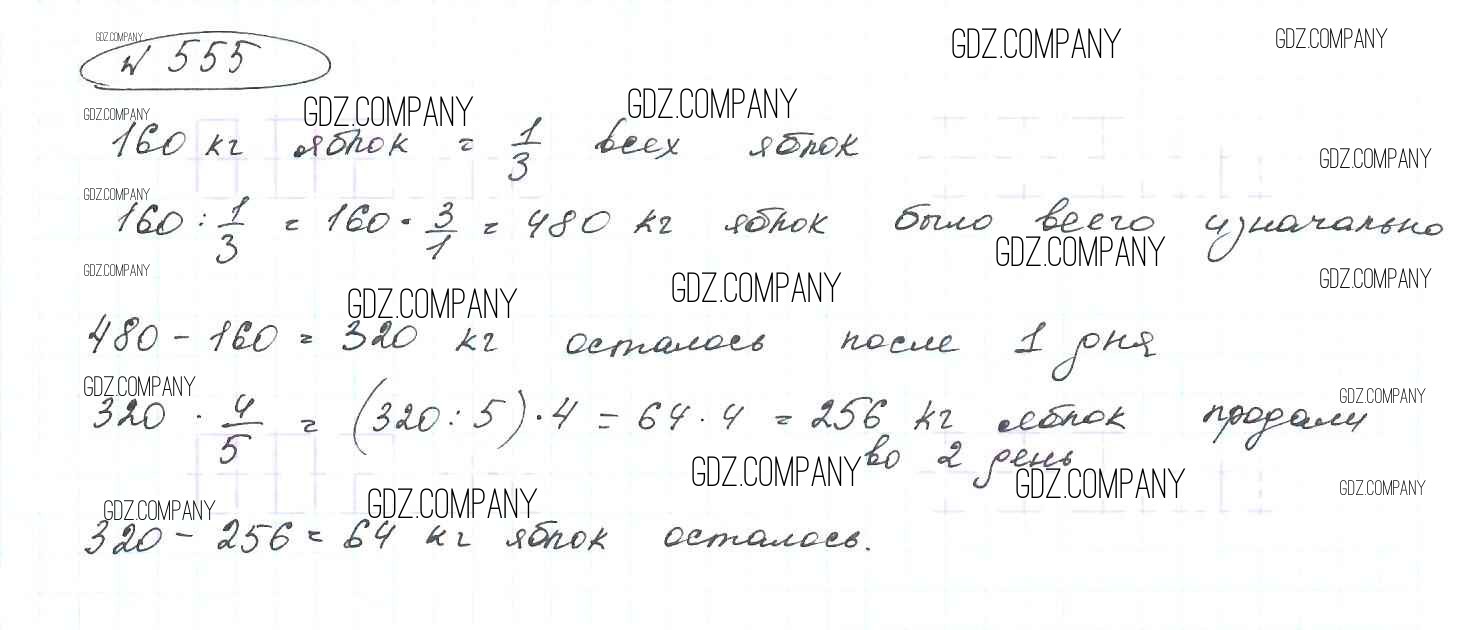 GDZ.COMPANY GDZ.COMPANY GDZ.COMPANY
№ 555
GDZ.COMPANY GDZ.COMPANY GDZ.COMPANY
160 кг яблок = 1/3 всех яблок
GDZ.COMPANY
GDZ.COMPANY
160 : 1/3 = 160 · 3/1 = 480 кг яблок было всего изначально
GDZ.COMPANY GDZ.COMPANY
GDZ.COMPANY GDZ.COMPANY GDZ.COMPANY
480 - 160 = 320 кг осталось после 1 дня
GDZ.COMPANY GDZ.COMPANY
320 · 4/5 = (320 : 5) · 4 = 64 · 4 = 256 кг яблок продали
во 2 день
GDZ.COMPANY GDZ.COMPANY GDZ.COMPANY
GDZ.COMPANY GDZ.COMPANY
320 - 256 = 64 кг яблок осталось.